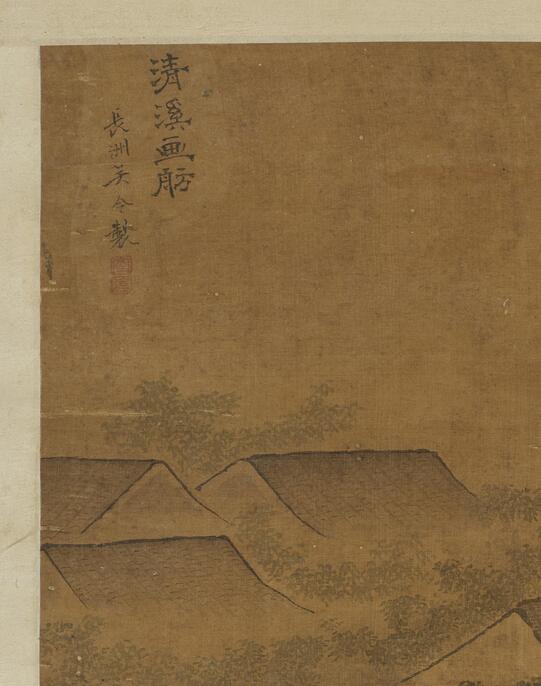 清溪画舫
長洲吴令製